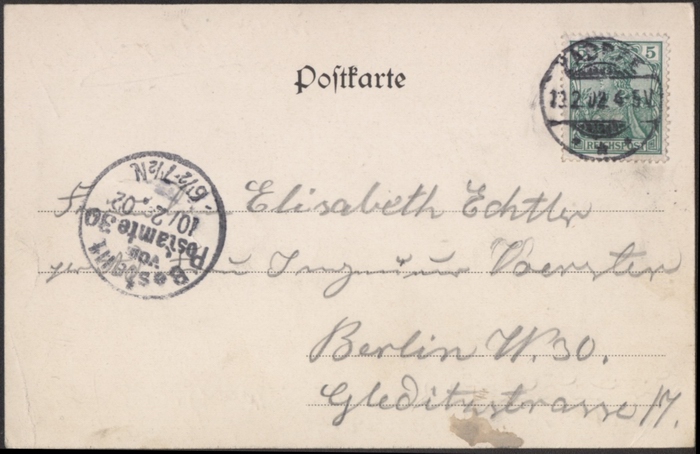 Postkarte
5
13.2.02. 4-5 V.
REICHSPOST
Bestellt
vom
Postamte 30
10/2.02
6½-7½N
Elisabeth Echtler
Ingenieur
Berlin W. 30.
Gleditschstrasse 17.